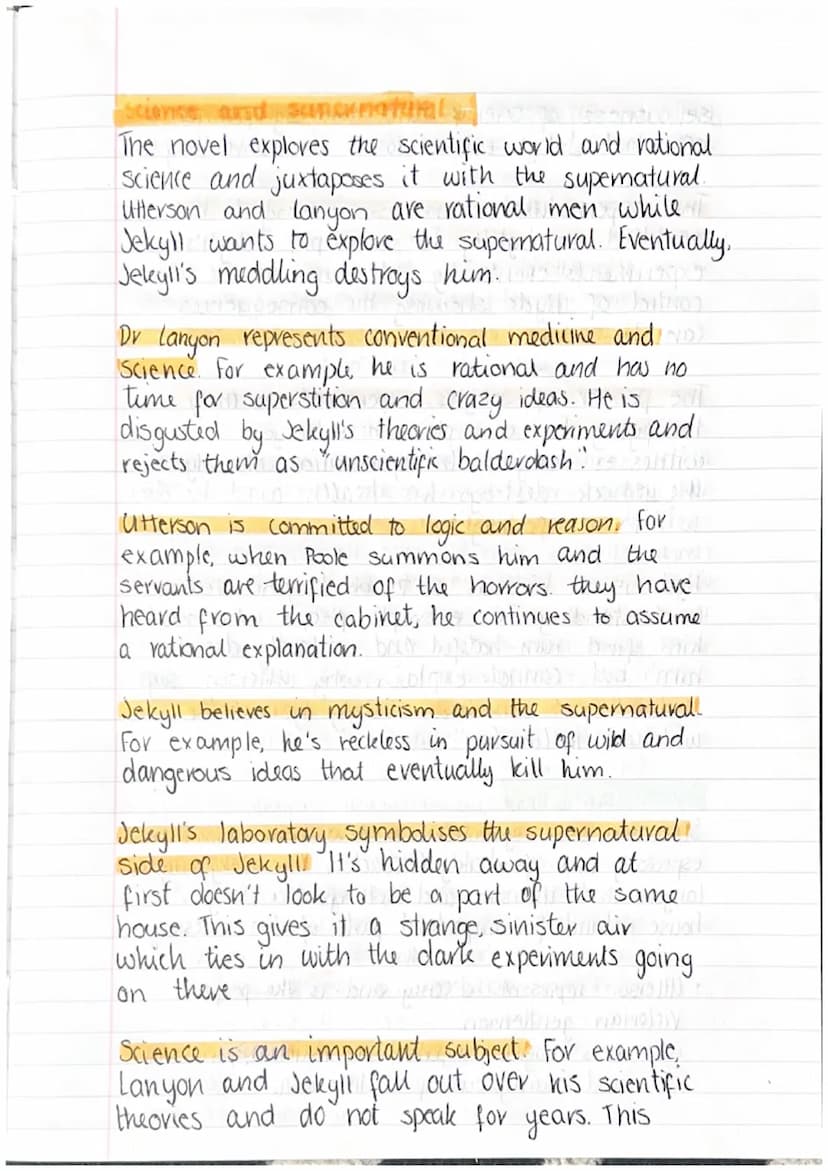 Science and supernatural
The novel explores the scientific world and rational
science and juxtaposes it with the supernatural.
Utterson and Lanyon are rational men while
Jekyll wants to explore the supernatural. Eventually,
Jekyll's meddling destroys him.
Dr Lanyon represents conventional medicine and
science. For example, he is rational and has no
time for superstition and crazy ideas. He is
disgusted by Jekyll's theories and experiments and
rejects them as "unscientific balderdash".
Utterson is committed to logic and reason. For
example, when Poole summons him and the
servants are terrified of the horrors they have
heard from the cabinet, he continues to assume
a rational explanation.
Jekyll believes in mysticism and the supernatural.
For example, he's reckless in pursuit of wild and
dangerous ideas that eventually kill him.
Jekyll's laboratory symbolises the supernatural
side of Jekyll. It's hidden away and at
first doesn't look to be a part of the same
house. This gives it a strange, sinister air
which ties in with the dark experiments going
on there
Science is an important subject. For example,
Lanyon and Jekyll fall out over his scientific
theories and do not speak for years. This